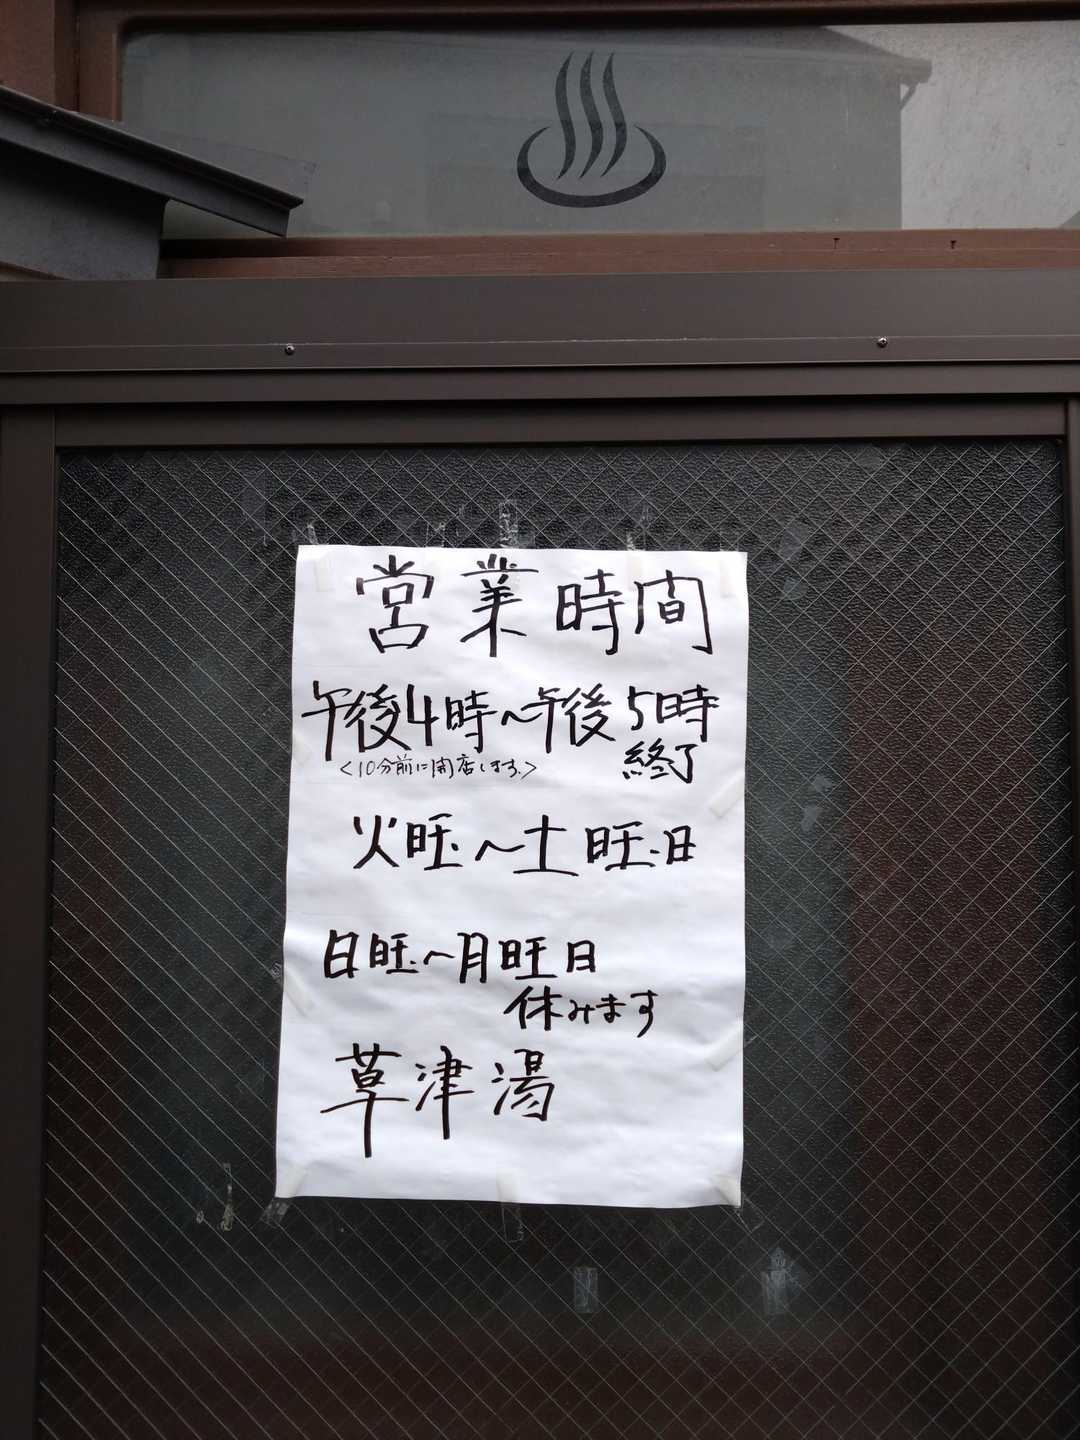 営業時間
午後4時～午後5時
終了
<10分前に開店します。>
火旺～土旺日
日旺～月旺日
休みます
草津湯